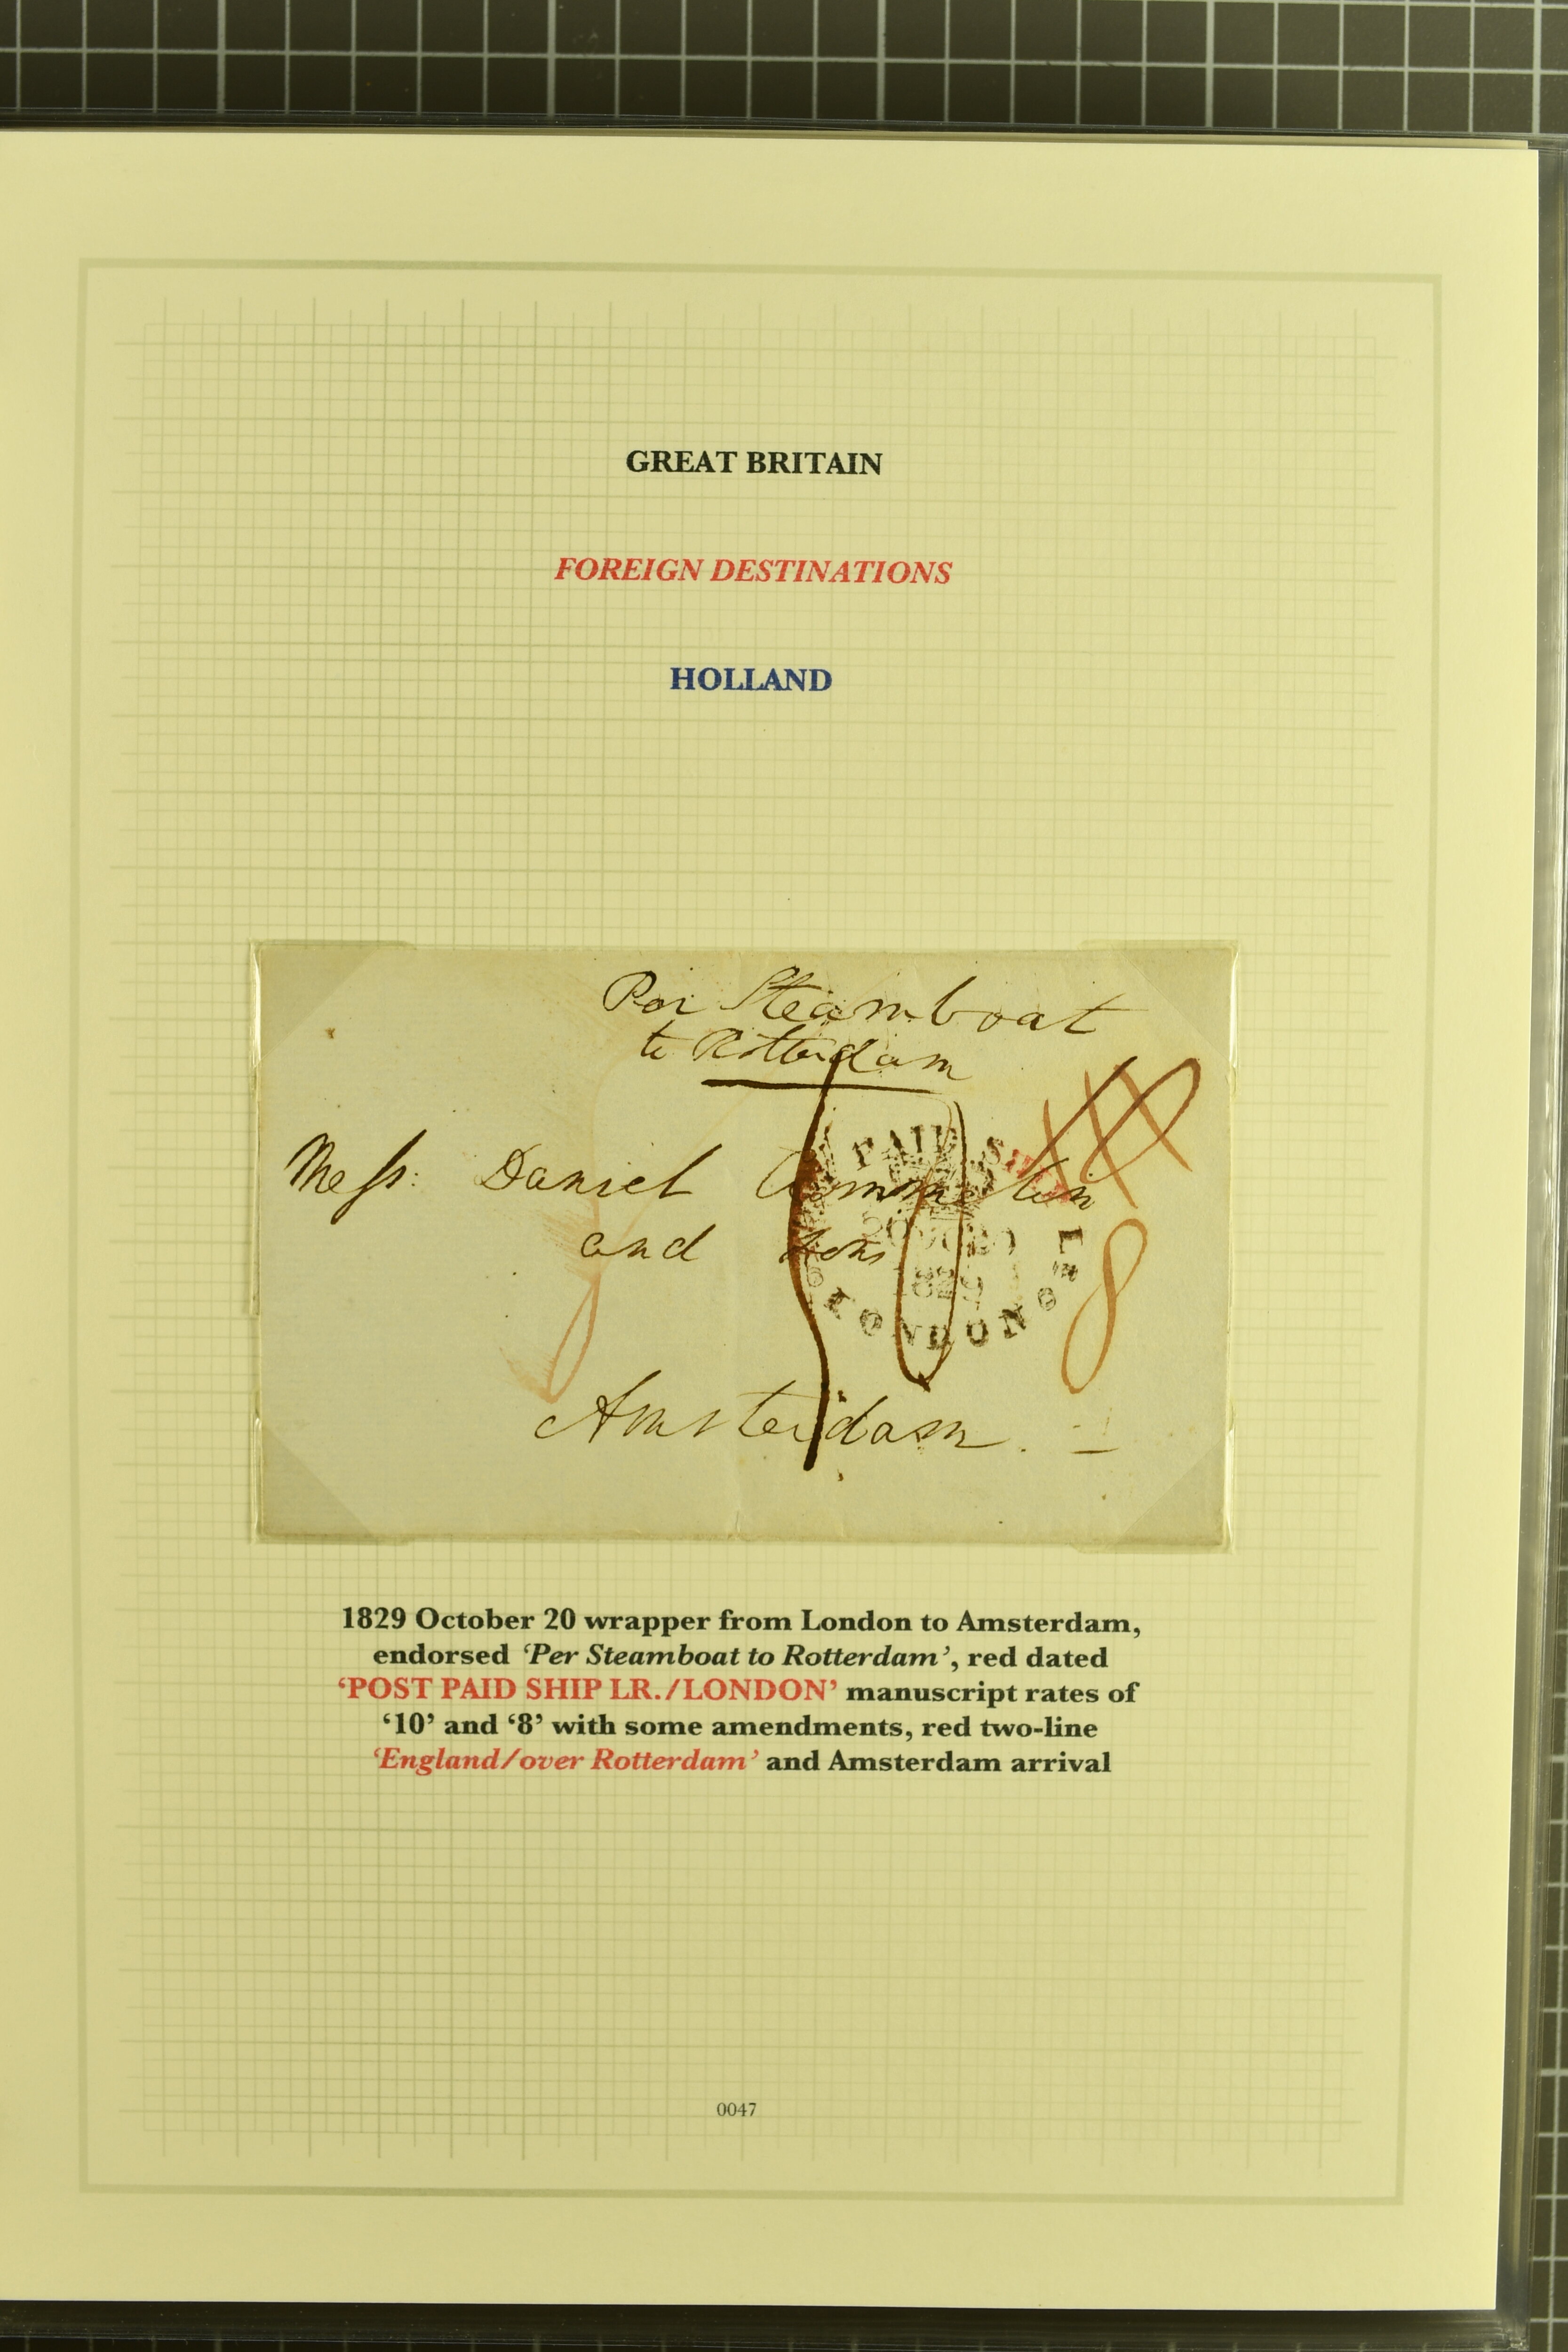 GREAT BRITAIN
FOREIGN DESTINATIONS
HOLLAND
Per Steamboat
to Rotterdam
Mess: Daniel
and Sons
PAID S
20 OC 20
1829
LONDON
8
Amsterdam.
1829 October 20 wrapper from London to Amsterdam,
endorsed ‘Per Steamboat to Rotterdam’, red dated
‘POST PAID SHIP LR./LONDON’ manuscript rates of
‘10’ and ‘8’ with some amendments, red two-line
‘England/over Rotterdam’ and Amsterdam arrival
0047